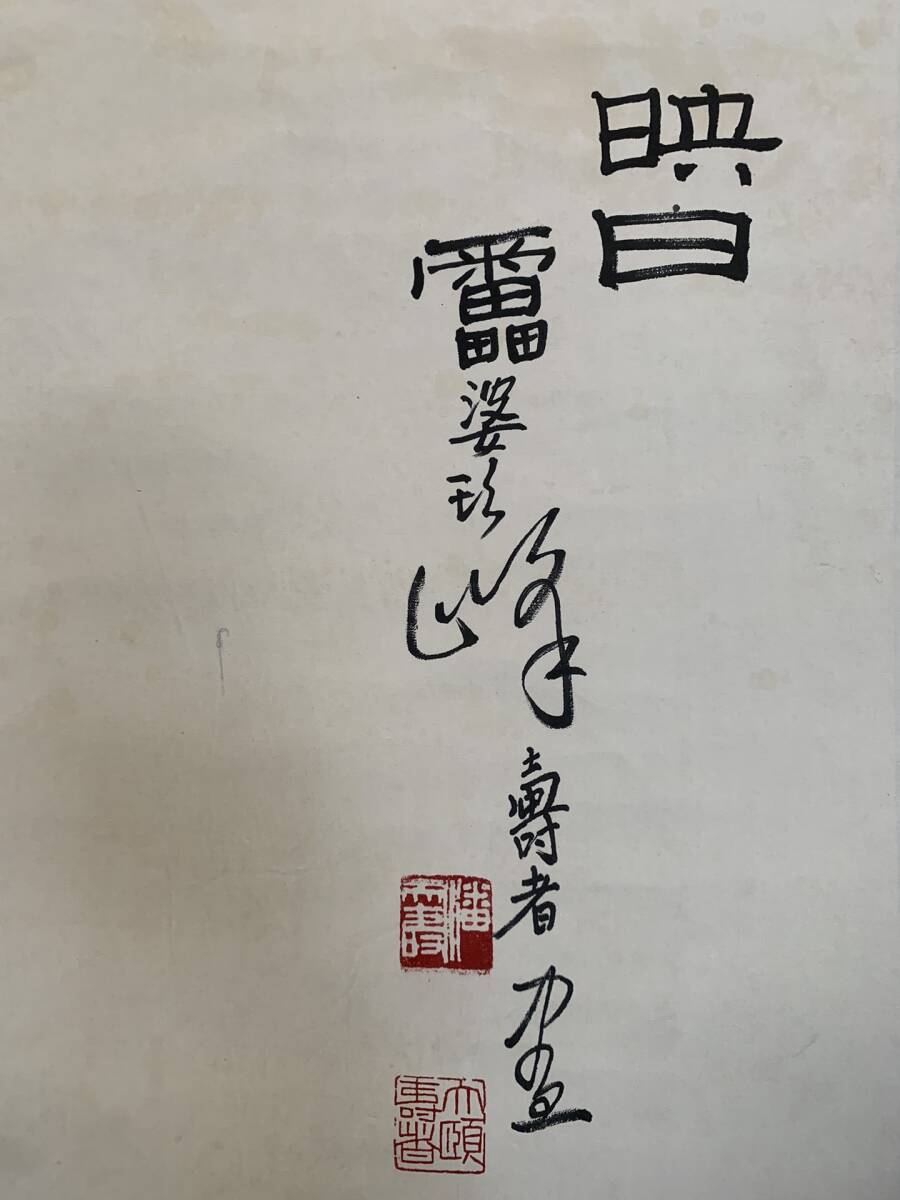 映日
雷婆頭峰壽者
潘天壽
大頤壽者